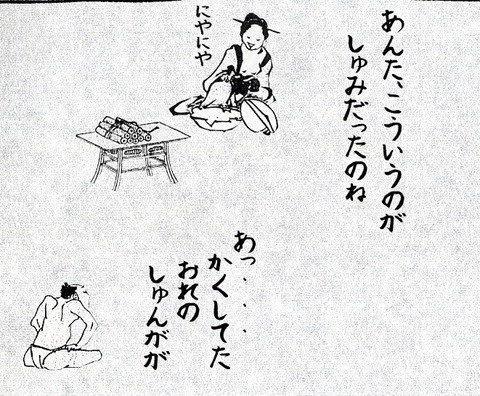 あんた、こういうのが
しゅみだったのね
にやにや
あっ・・・・
かくしてた
おれの
しゅんがが